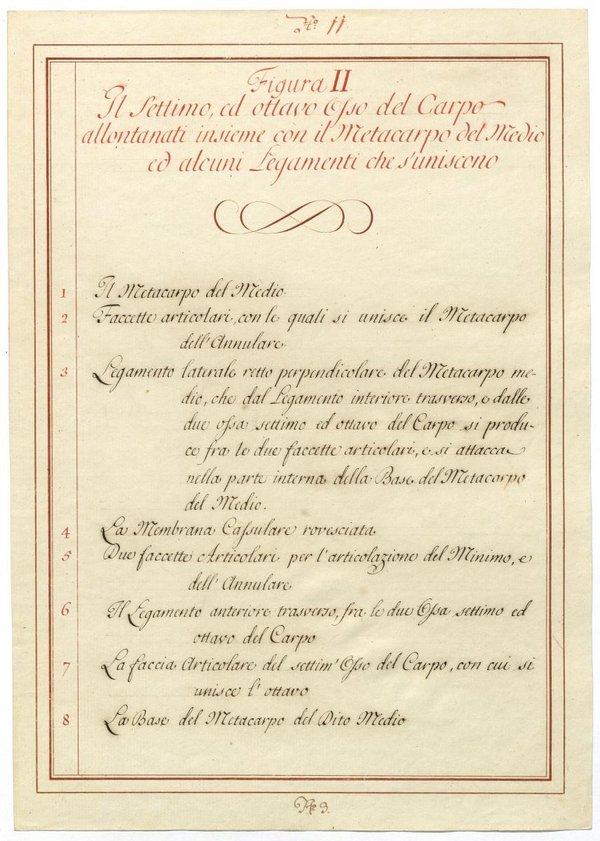 No. 11
Figura II
Il Settimo, ed ottavo Osso del Carpo
allontanati insieme con il Metacarpo del Medio
ed alcuni Legamenti che s'uniscono
1 Il Metacarpo del Medio
2 Faccette articolari, con le quali si unisce il Metacarpo
dell'Annulare
3 Legamento laterale retto perpendicolare del Metacarpo me-
dio, che dal Legamento interiore trasverso, e dalle
due ossa settimo ed ottavo del Carpo si produ-
ce fra le due faccette articolari, e si attacca
nella parte interna della Base del Metacorpo
del Medio.
4 La Membrana Cassulare rovesciata
5 Due faccette Articolari per l'articolazione del Minimo, e
dell'Annulare
6 Il Legamento anteriore trasverso, fra le due Ossa settimo ed
ottavo del Carpo
7 La faccia Articolare del settim' Osso del Carpo, con cui si
unisce l'ottavo
8 La Base del Metacarpo del Dito Medio